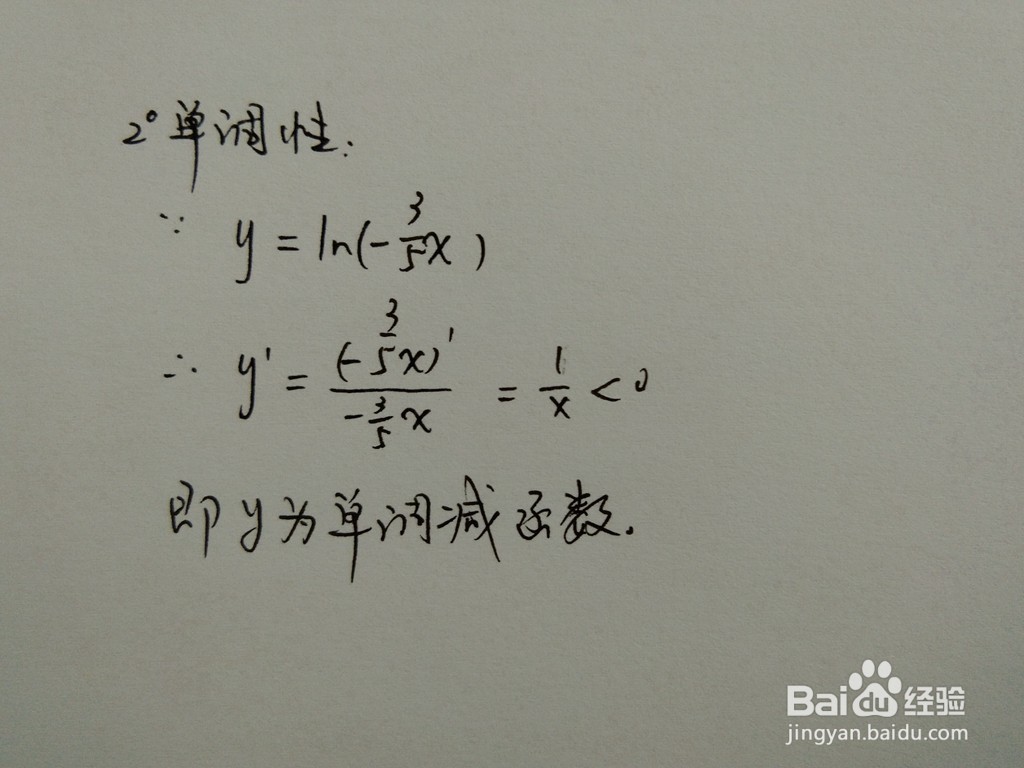 2° 单调性:
∵ y = ln(-3/5x)
∴ y' = (-3/5x)' / -3/5x = 1/x < 0
即y为单调减函数.
Baidu经验
jingyan.baidu.com